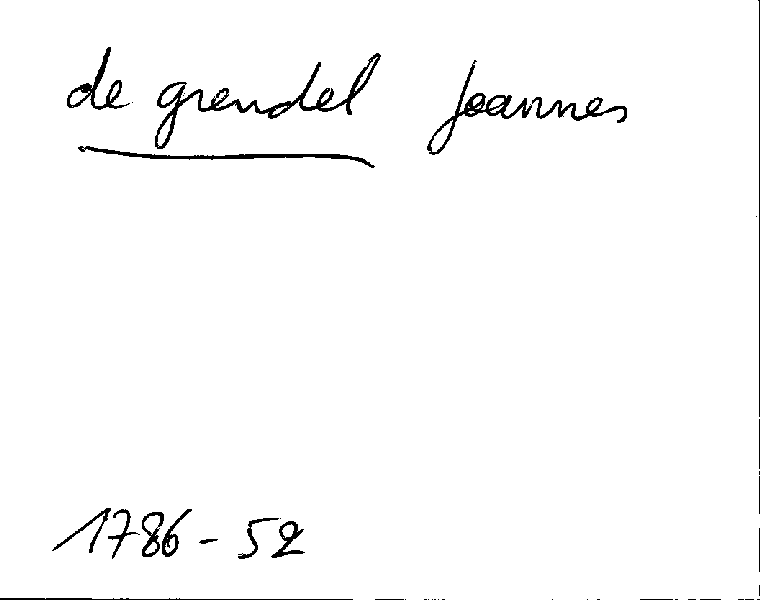 de grendel Joannes
1786 - 52